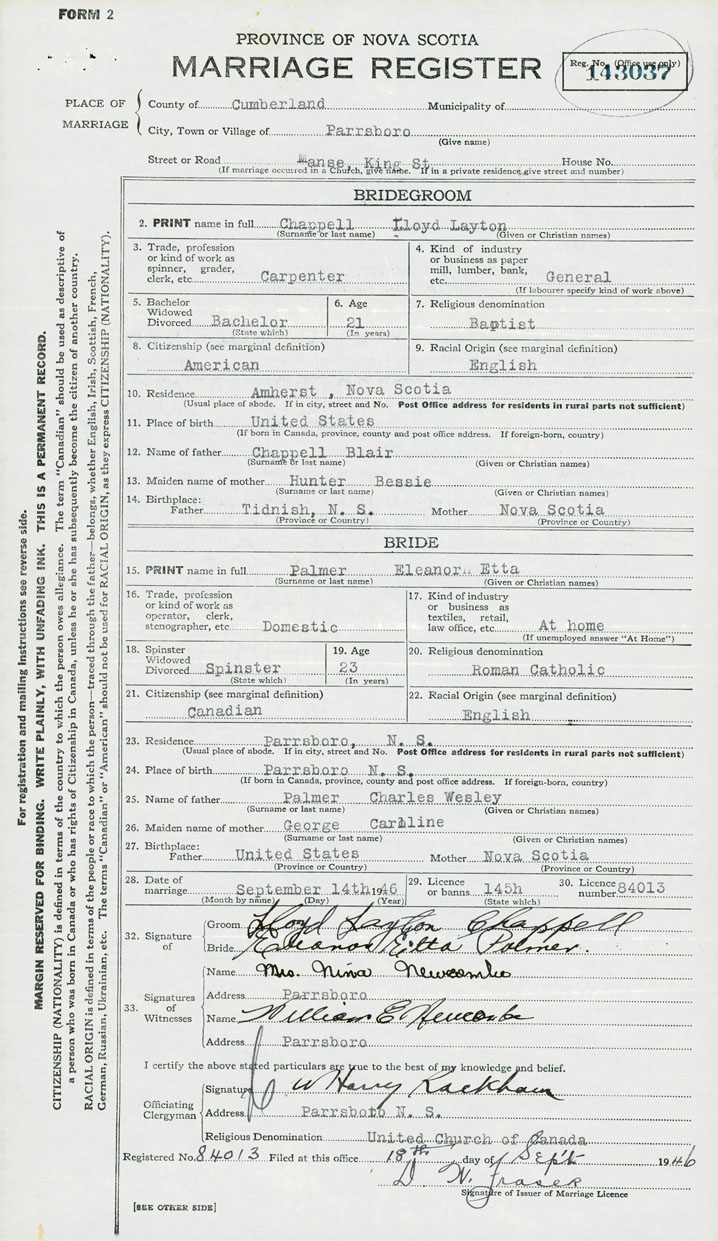 FORM 2
PROVINCE OF NOVA SCOTIA
MARRIAGE REGISTER
Reg. No. (Office use only)
143037
PLACE OF MARRIAGE
County of Cumberland Municipality of
City, Town or Village of Parrsboro
(Give name)
Street or Road Manse, King St House No.
(If marriage occurred in a Church, give name. If in a private residence give street and number)
BRIDEGROOM
2. PRINT name in full Chappell Lloyd Layton
(Surname or last name) (Given or Christian names)
3. Trade, profession or kind of work as spinner, grader, clerk, etc. Carpenter
4. Kind of industry or business as paper mill, lumber, bank, etc. General
(If labourer specify kind of work above)
5. Bachelor Widowed Divorced Bachelor
(State which)
6. Age 21
(In years)
7. Religious denomination
Baptist
8. Citizenship (see marginal definition)
American
9. Racial Origin (see marginal definition)
English
10. Residence Amherst , Nova Scotia
(Usual place of abode. If in city, street and No. Post Office address for residents in rural parts not sufficient)
11. Place of birth United States
(If born in Canada, province, county and post office address. If foreign-born, country)
12. Name of father Chappell Blair
(Surname or last name) (Given or Christian names)
13. Maiden name of mother Hunter Bessie
(Surname or last name) (Given or Christian names)
14. Birthplace:
Father Tidnish, N. S. Mother Nova Scotia
(Province or Country) (Province or Country)
BRIDE
15. PRINT name in full Palmer Eleanor Etta
(Surname or last name) (Given or Christian names)
16. Trade, profession or kind of work as operator, clerk, stenographer, etc. Domestic
17. Kind of industry or business as textiles, retail, law office, etc. At home
(If unemployed answer "At Home")
18. Spinster Widowed Divorced Spinster
(State which)
19. Age 23
(In years)
20. Religious denomination
Roman Catholic
21. Citizenship (see marginal definition)
Canadian
22. Racial Origin (see marginal definition)
English
23. Residence Parrsboro, N. S.
(Usual place of abode. If in city, street and No. Post Office address for residents in rural parts not sufficient)
24. Place of birth Parrsboro N. S.
(If born in Canada, province, county and post office address. If foreign-born, country)
25. Name of father Palmer Charles Wesley
(Surname or last name) (Given or Christian names)
26. Maiden name of mother George Carlline
(Surname or last name) (Given or Christian names)
27. Birthplace:
Father United States Mother Nova Scotia
(Province or Country) (Province or Country)
28. Date of marriage September 14th 1946
(Month by name) (Day) (Year)
29. Licence or banns 145h
(State which)
30. Licence number 84013
32. Signature of
Groom Lloyd Layton Chappell
Bride Eleanor Etta Palmer.
33. Signatures of Witnesses
Name Mrs. Nina Newcombe
Address Parrsboro
Name William E Newcombe
Address Parrsboro
I certify the above stated particulars are true to the best of my knowledge and belief.
Officiating Clergyman
Signature W Harry Rackham
Address Parrsboro N. S.
Religious Denomination United Church of Canada
Registered No. 84013 Filed at this office 18th day of Sept 1946
D. N. Fraser
Signature of Issuer of Marriage Licence
[SEE OTHER SIDE]
For registration and mailing instructions see reverse side.
MARGIN RESERVED FOR BINDING. WRITE PLAINLY, WITH UNFADING INK. THIS IS A PERMANENT RECORD.
CITIZENSHIP (NATIONALITY) is defined in terms of the country to which the person owes allegiance. The term "Canadian" should be used as descriptive of
a person who was born in Canada or who has rights of Citizenship in Canada, unless he or she has subsequently become the citizen of another country.
RACIAL ORIGIN is defined in terms of the people or race to which the person—traced through the father—belongs, whether English, Irish, Scottish, French,
German, Russian, Ukrainian, etc. The terms "Canadian" or "American" should not be used for RACIAL ORIGIN, as they express CITIZENSHIP (NATIONALITY).